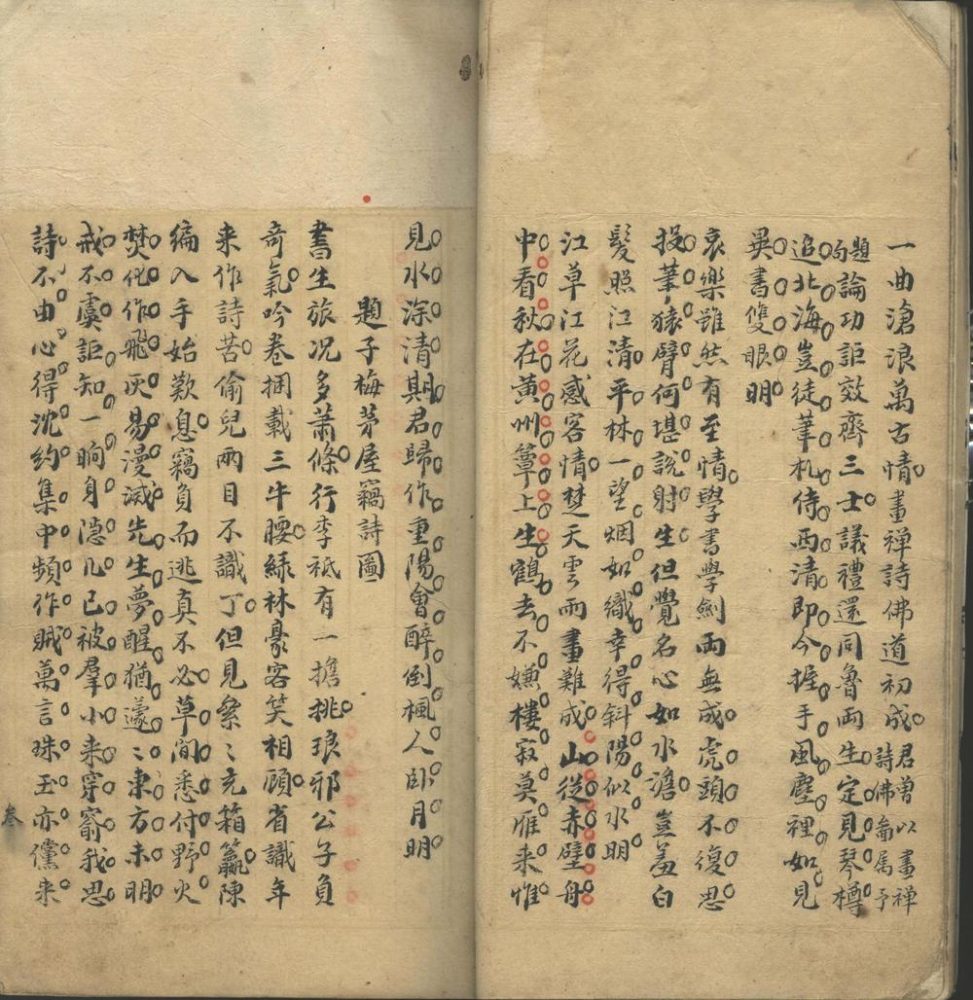 一曲滄浪萬古情畫禪詩佛道初成君曾以畫禪詩佛䘮屬予
題句論功詎效齊三士議禮還同魯兩生定見琴樽
追北海豈徒筆札侍西清即今握手風塵裡如見
異書雙眼明
哀樂雖然有至情學書學劍兩無成虎頭不復思
投筆猿臂何堪說射生但覺名心如水澹豈羞白
髮照江清平林一望烟如織幸得斜陽似水明
江草江花感客情楚天雲雨畫難成山從赤壁舟
中看秋在黃州簟上生鶴去不嫌樓寂莫雁來惟
見水深清期君歸作重陽會醉倒楓人臥月明
題子梅茅屋竊詩圖
書生旅況多蕭條行李祗有一擔挑琅邪公子負
奇氣吟卷捆載三牛腰綠林豪客笑相顧省識年
來作詩苦偷兒兩目不識丁但見纍〻充箱籯陳
編入手始歎息竊負而逃真不必草間悉付野火
焚化作飛灰易漫滅先生夢醒猶蘧〻東方未明
戒不虞詎知一晌身隱几已被羣小來穿窬我思
詩不由心得沈約集中頻作賊萬言珠玉亦儻來
叁